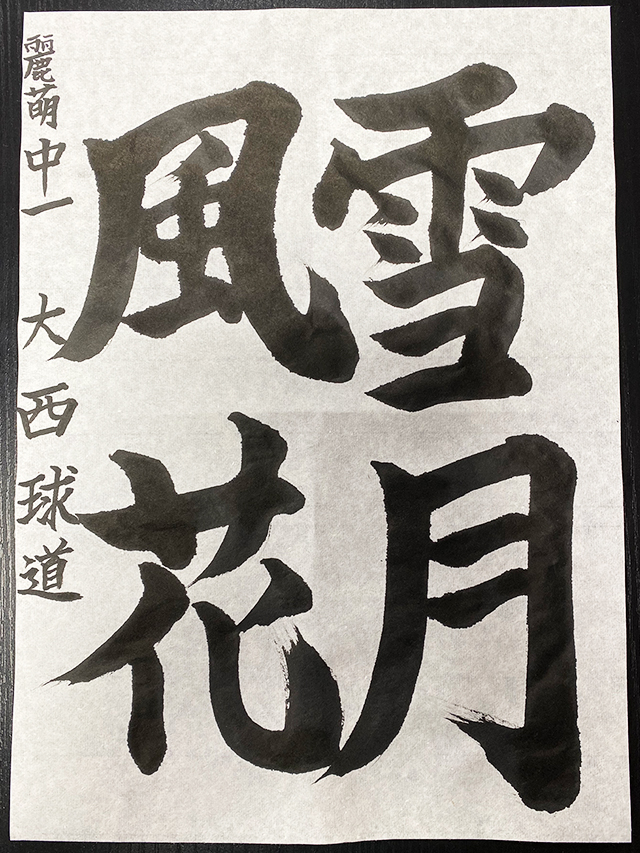 雪月
風花
麗萌中一 大西球道